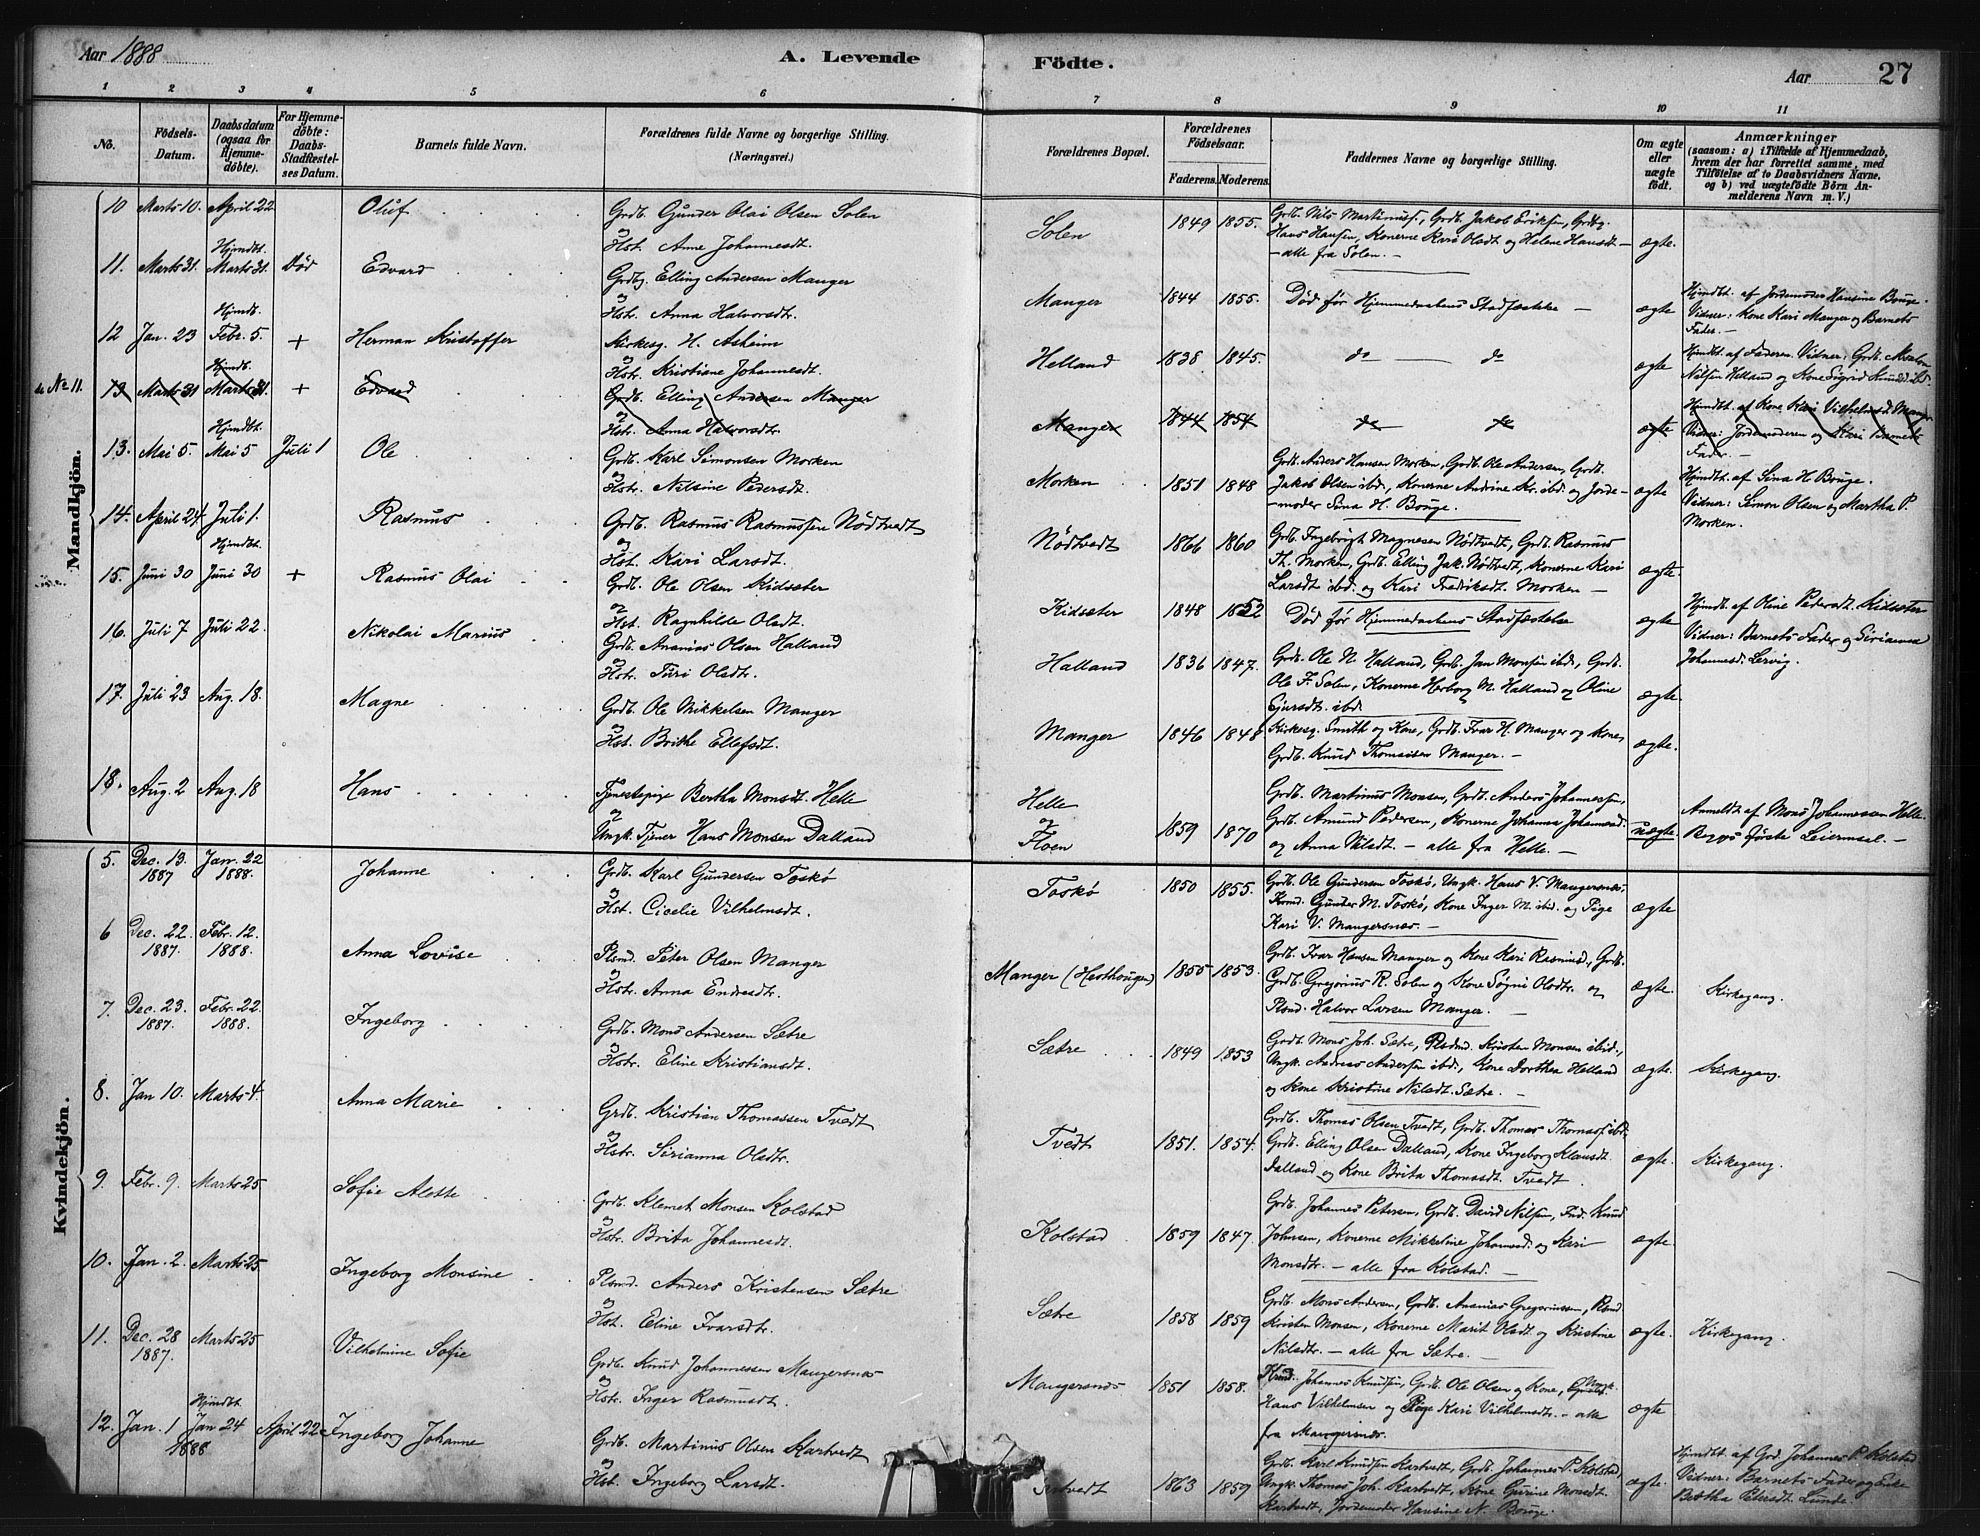 Aar 1888
A. Levende Födte.
Aar 27
1 2 3 4 5 6 7 8 9 10 11
No.
Födsels-Datum.
Daabsdatum (ogsaa for Hjemme-döbte).
For Hjemme-döbte: Daabs-Stadfæstel-ses Datum.
Barnets fulde Navn.
Forældrenes fulde Navne og borgerlige Stilling. (Næringsvei.)
Forældrenes Bopæl.
Forældrenes Födselsaar.
Faderens. Moderens.
Faddernes Navne og borgerlige Stilling.
Om ægte eller uægte födt.
Anmærkninger
(saasom: a) i Tilfælde af Hjemmedaab,
hvem der har forrettet samme, med
Tilföielse af to Daabsvidners Navne,
og b) ved uægtefödte Börn An-
melderens Navn m. V.)
Mandkjön.
10 Marts 10. April 22 Oluf Grdb. Gunder Olai Olsen Solen
og Hst. Anne Johannesdt.
Solen 1849 1855.
Hans Hansen, Konerne Kari Olsdt. og Helene Hansdt.
– alle fra Solen. – ægte.
11. Marts 31. Hjmdbt. Marts 31. Död Edvard Grdbg. Elling Andersen Manger
og Hstr. Anna Halvorsdtr.
Manger 1844 1855. Död för Hjemmedaabens Stadfæstelse – ægte
Hjmdbt. af Jordemoder Hansine Bouge.
Vidner: Kone Kari Manger og Barnets
Fader. –
12 Jan. 23 Hjmdb. Febr. 5. + Herman Kristoffer Kirkesg. H. Asheim
og Hstr. Kristiane Johannesdt.
Helland 1838 1845. do do ægte
Nilsen Helland og Kone Sigrid Knudsd. ibd.
de No 11. 13 Marts 31 Hjmdb. Marts 31. + Edvard Grdb. Elling Andersen Manger
og Hstr. Anna Halvorsdtr.
Manger 1844 1854 do do ægte
Hjmdbt. af Kone Kari Vilhelmsdt. Manger
Fader. –
13. Mai 5. Hjmdbt. Mai 5 Juli 1 Ole Grdb. Karl Simonsen Morken
og Hstr. Nilsine Pedersdt.
Morken 1851 1848
Grdb. Anders Hansen Morken, Grdb. Ole Andersen, Grdb.
Jakob Olsen ibd., Konerne Andrine Kr. ibd. og Jorde-
moder Sina H. Bouge. ægte
Hjmdbt. af Sina H. Bouge.
Vidner: Simon Olsen og Martha P.
Morken.
14. April 24 Juli 1. Rasmus Grdb. Rasmus Rasmussen Nödtvedt
og Hst. Kari Larsdt.
Nödtvedt 1866 1860
Grdb. Ingebrigt Magnesen Nödtvedt, Grdb. Rasmus
Th. Morken, Grdb. Elling Jak. Nödtvedt, Konerne Kari
Larsdt. ibd. og Kari Fredriksdt. Morken – ægte.
15. Juni 30 Hjmdbt. Juni 30 + Rasmus Olai Grdb. Ole Olsen Kidsæter
og Hst. Ragnhilde Olsdt.
Kidsæter 1848 1852 Död för Hjemmedaabens Stadfæstelse ægte
Hjmdbt. af Oline Pedersdt. Kidsæter
Vidner: Barnets Fader og Sirianna
Johannesd. Lervig.
16. Juli 7 Juli 22. Nikolai Marius Grdb. Ananias Olsen Halland
og Hstr. Turi Olsdtr.
Halland 1836 1847.
Grdb. Ole N. Halland, Grdb. Jan Monsen ibd., Grdb.
Ole F. Solen, Konerne Herborg M. Halland og Oline
Sjursdt. ibd. ægte.
17. Juli 23 Aug. 18. Magne Grdb. Ole Mikkelsen Manger
og Hst. Brithe Ellefsdt.
Manger 1846 1848
Kirkesg. Smith og Kone, Grdb. Ivar H. Manger og Kone,
Grdb. Knud Thomassen Manger. – ægte.
18. Aug. 2 Aug. 18 Hans Tjenestepige Bertha Monsdt. Helle
og Ungk. Tjener Hans Monsen Dalland
Helle og Floen 1859 1870
Grdb. Martinus Monsen, Grdb. Anders Johannessen,
Grdb. Amund Pedersen, Konerne Johanna Johannesd.
og Anna Nilsdt. – alle fra Helle. – uægte.
Anmeldt af Mons Johannessen Helle.
Begges förste Leiermaal. –
Kvindekjön.
5. Dec. 13. 1887 Jan. 22 1888. Johanne Grdb. Karl Gundersen Toskö
og Hst. Cicelie Vilhelmsdt.
Toskö 1850 1855.
Grdb. Ole Gundersen Toskö, Ungk. Hans V. Mangersnæs,
Gunder M. Toskö, Kone Inger M. ibd. og Pige
Kari V. Mangersnæs. – ægte
6 Dec. 22. 1887. Febr. 12. 1888. Anna Lovise Plsmd. Peter Olsen Manger
og Hstr. Anna Endresdtr.
Manger (Hesthougen) 1855 1853.
Grdb. Ivar Hansen Manger og Kone Kari Rasmusd., Grdb.
Grdb. Gregorius R. Solen og Kone Sögni Olsdtr. og
Plsmd. Halvor Larsen Manger. – ægte. Kirkegang.
7. Dec. 23. 1887. Febr. 22 1888. Ingeborg Grdb. Mons Andersen Sætre
og Hstr. Eline Kristiansdt.
Sætre 1849 1853
Grdb. Mons Joh. Sætre, Plsdmd. Kristen Monsen ibid.,
Ungk. Andreas Andersen ibd., Kone Dorthea Helland
og Kone Kristine Nilsdt. Sætre. – ægte. Kirkegang.
8. Jan 10. Marts 4. Anna Marie Grdb. Kristian Thomassen Tvedt
og Hstr. Sirianna Olsdtr.
Tvedt 1851. 1854.
Grdb. Thomas Olsen Tvedt, Grdb. Thomas Thomass. ibd.
Grdb. Elling Olsen Dalland, Kone Ingeborg Klausdt.
Dalland og Kone Brita Thomasdt. Tvedt. ægte. Kirkegang.
9. Febr. 9. Marts 25 Sofie Alette Grdb. Klemet Monsen Kolstad
og Hstr. Brita Johannesdt.
Kolstad 1859 1847.
Grdb. Johannes Petersen, Grdb. David Nilsen, Knud
Johnsen, Konerne Mikkeline Johannesd. og Kari
Monsdtr. – alle fra Kolstad. – ægte.
10. Jan. 2. Marts 25 Ingeborg Monsine Plsmd. Anders Kristensen Sætre
og Hst. Eline Ivarsdtr.
Sætre 1858 1859
Grdb. Mons Andersen, Grdb. Ananias Gregoriussen, Plsmd
Kristen Monsen, Konerne Marit Olsdt. og Kristine
Nilsdtr. – alle fra Sætre. – ægte. Kirkegang.
11. Dec. 28 1887. Marts 25 Vilhelmine Sofie Grdb. Knud Johannessen Mangersnæs
og Hst. Inger Rasmusdt.
Mangersnæs 1851 1858.
Johannes Knudsen, Grdb. Ole Olsen og Kone, Ungk.
Hans Vilhelmsen og Pige Kari Vilhelmsdt. – alle
fra Mangersnæs. ægte
12. Jan. 1 1888 Hjmdbt. Jan 24 April 22 Ingeborg Johanne Grdb. Martinus Olsen Kartvedt
og Hst. Ingeborg Larsdt.
1863 1859
Grdb. Karl Knudsen Kartvedt, Grdb. Johannes P. Kolstad,
Ungk. Thomas Joh. Kartvedt, Kone Gurine Monsdt.
Kartvedt, Jordemoder Hansine N. Bouge. ægte.
Hjmdbt. af Grd. Johannes P. Kolstad
Vidner: Barnets Fader og Enke
Bertha Petersdt. Lunde